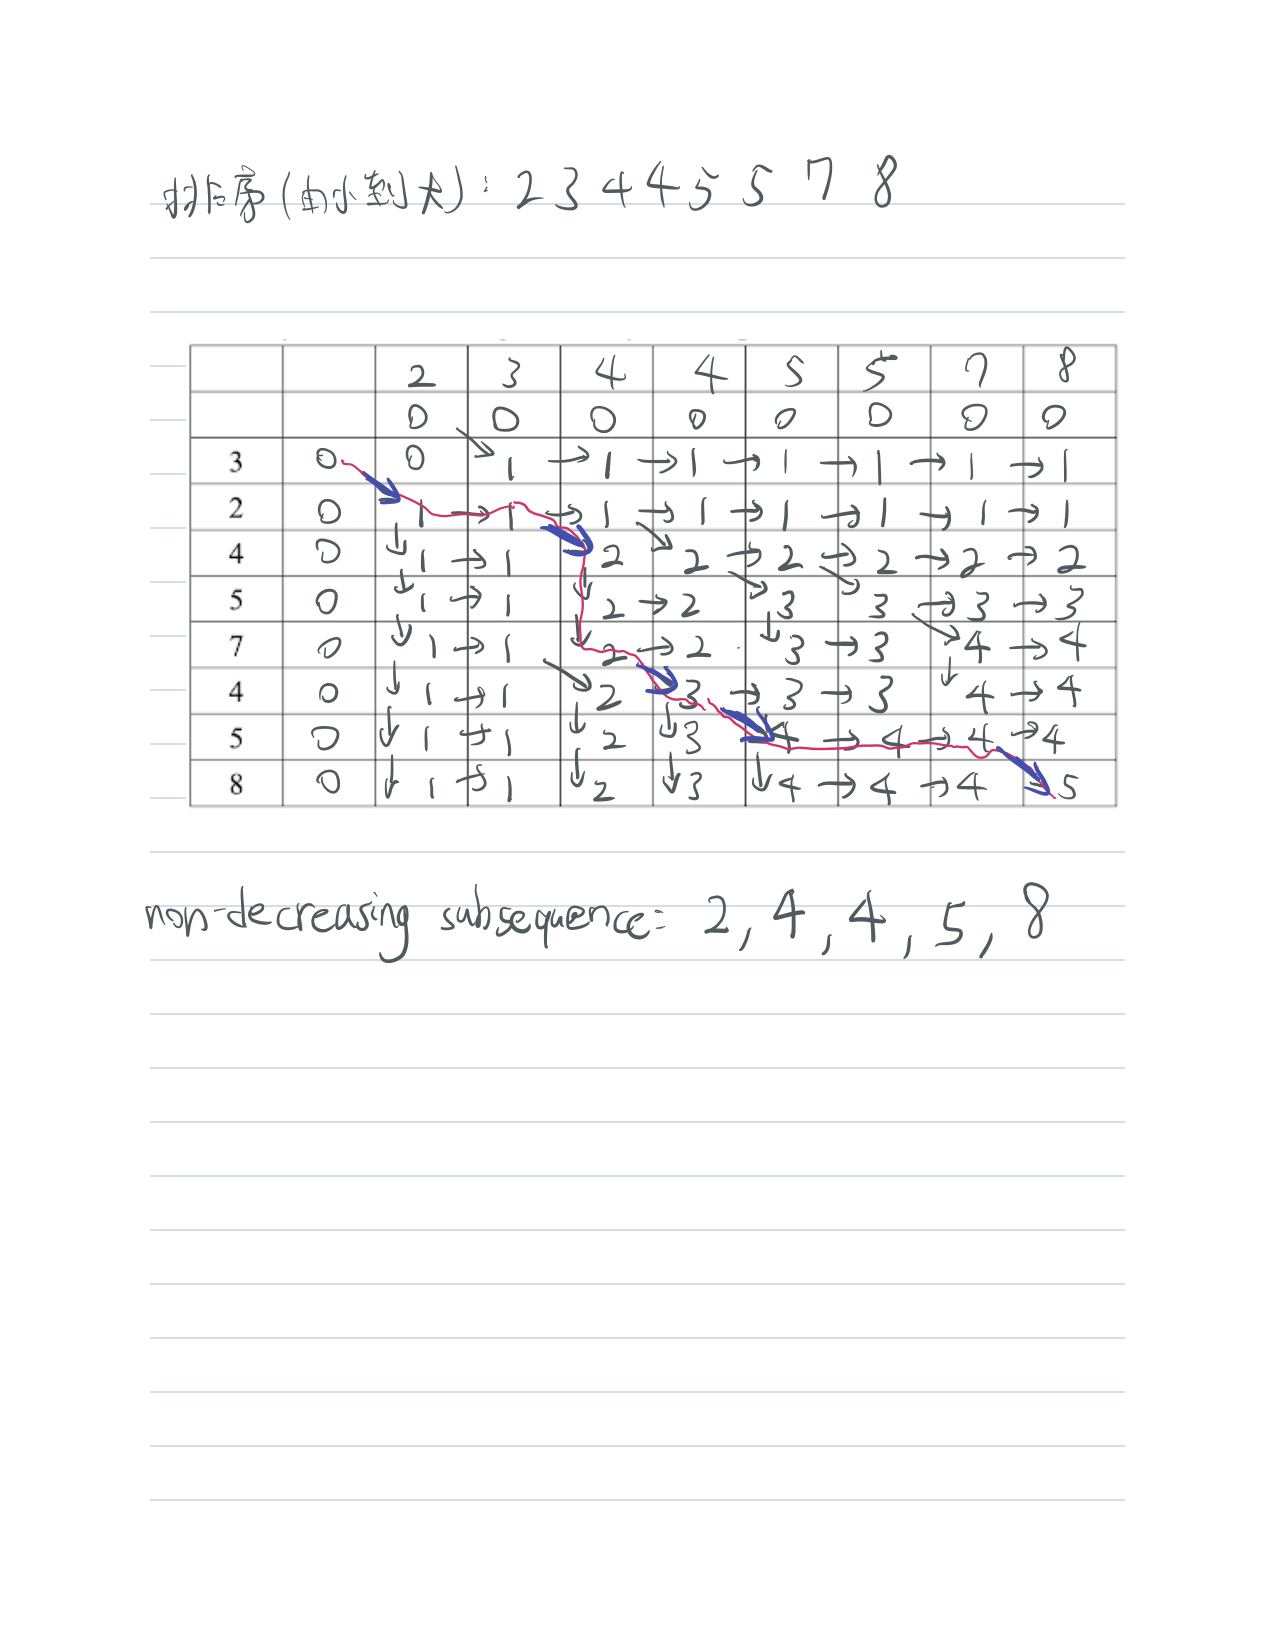 排序(由小到大): 2 3 4 4 5 5 7 8
2 3 4 4 5 5 7 8
0 0 0 0 0 0 0 0
3 0 0 1 → 1 → 1 → 1 → 1 → 1 → 1
2 0 1 → 1 → 1 → 1 → 1 → 1 → 1 → 1
4 0 1 → 1 2 2 → 2 → 2 → 2 → 2
5 0 1 → 1 2 → 2 3 3 → 3 → 3
7 0 1 → 1 2 → 2 3 → 3 4 → 4
4 0 1 → 1 2 3 → 3 → 3 4 → 4
5 0 1 → 1 2 3 4 → 4 → 4 → 4
8 0 1 → 1 2 3 4 → 4 → 4 5
non-decreasing subsequence: 2, 4, 4, 5, 8